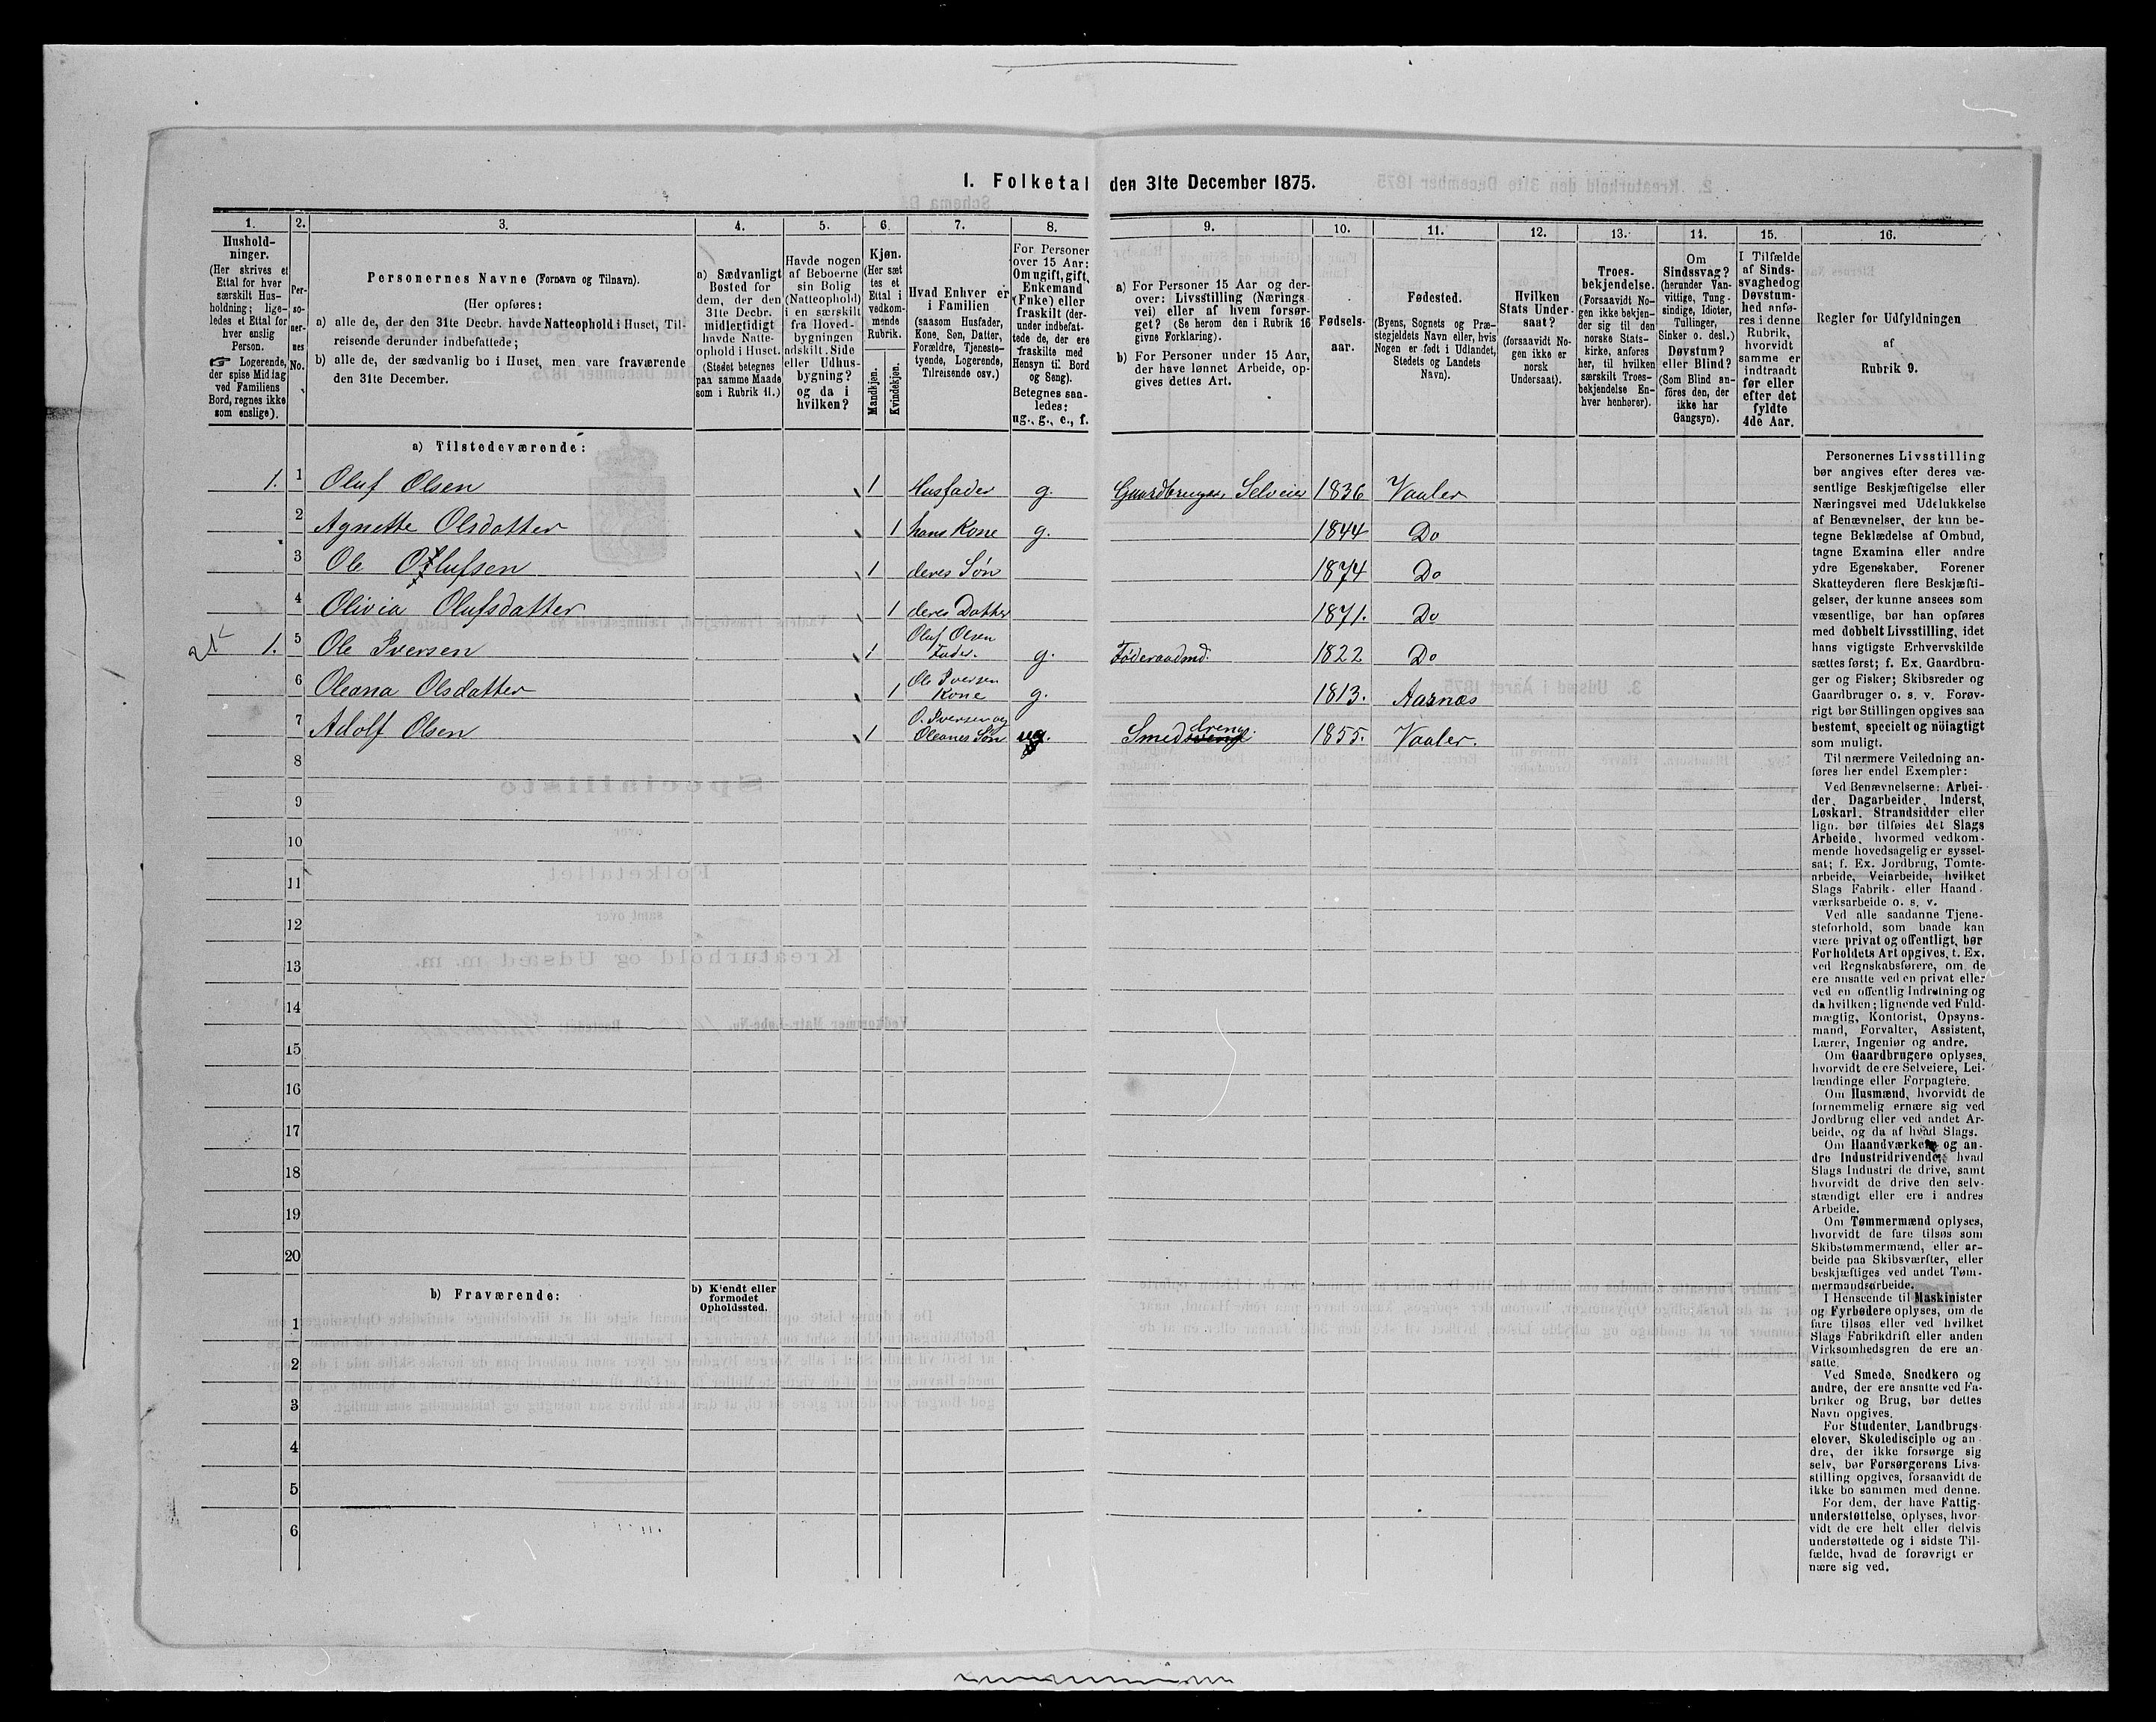 I. Folketal den 31te December 1875.
1. 2. 3. 4. 5. 6. 7. 8. 9. 10. 11. 12. 13. 14. 15. 16.
Hushold-
ninger.
(Her skrives et
Ettal for hver
særskilt Hus-
holdning; lige-
ledes et Ettal for
hver enslig
Person.
☞ Logerende,
der spise Middag
ved Familiens
Bord, regnes ikke
som enslige).
Per-
so-
ner-
nes
No.
Personernes Navne (Fornavn og Tilnavn).
(Her opføres:
a) alle de, der den 31te Decbr. havde Natteophold i Huset, Til-
reisende derunder indbefattede;
b) alle de, der sædvanlig bo i Huset, men vare fraværende
den 31te December.
a) Sædvanligt
Bosted for
dem, der den
31te Decbr.
midlertidigt
havde Natte-
ophold i Huset.
(Stedet betegnes
paa samme Maade
som i Rubrik 11.)
Havde nogen
af Beboerne
sin Bolig
(Natteophold)
i en særskilt
fra Hoved-
bygningen
adskilt Side
eller Udhus-
bygning?
og da i
hvilken?
Kjøn.
(Her sæt
tes et
Ettal i
vedkom-
mende
Rubrik.
Mandkjøn.
Kvindekjøn.
Hvad Enhver er
i Familien
(saasom Husfader,
Kone, Søn, Datter,
Forældre, Tjeneste-
tyende, Logerende,
Tilreisende osv.)
For Personer
over 15 Aar:
Om ugift, gift,
Enkemand
(Enke) eller
fraskilt (der-
under indbefat-
tede de, der ere
fraskilte med
Hensyn til Bord
og Seng).
Betegnes saa-
ledes:
ug., g., e., f.
a) For Personer 15 Aar og der-
over: Livsstilling (Nærings-
vei) eller af hvem forsør-
get? (Se herom den i Rubrik 16
givne Forklaring).
b) For Personer under 15 Aar,
der have lønnet Arbeide, op-
gives dettes Art.
Fødsels-
aar.
Fødested.
(Byens, Sognets og Præ-
stegjeldets Navn eller, hvis
Nogen er født i Udlandet,
Stedets og Landets
Navn).
Hvilken
Stats Under-
saat?
(forsaavidt No-
gen ikke er
norsk
Undersaat).
Troes-
bekjendelse.
(Forsaavidt No-
gen ikke bekjen-
der sig til den
norske Stats-
kirke, anføres
her, til hvilken
særskilt Troes-
bekjendelse En-
hver henhører).
Om
Sindssvag?
(herunder Van-
vittige, Tung-
sindige, Idioter,
Tullinger,
Sinker o. desl.)
Døvstum?
eller Blind?
(Som Blind an-
føres den, der
ikke har
Gangsyn).
I Tilfælde
af Sinds-
svaghed og
Døvstum-
hed anfø-
res i denne
Rubrik,
hvorvidt
samme er
indtraadt
før eller
efter det
fyldte
4de Aar.
Regler for Udfyldningen
af
Rubrik 9.
a) Tilstedeværende:
1. 1 Oluf Olsen 1 Husfader g. Gaardbruger, Selveier 1836 Vaaler
2 Agnette Olsdatter 1 hans Kone g. 1844 Do
3 Ole Olufsen 1 deres Søn 1874 Do
4 Olivia Olufsdatter 1 deres Datter 1871. Do
1. 5 Ole Iversen 1 Oluf Olsen
Fader. g. Føderaadmd. 1822 Do
6 Oleana Olsdatter 1 Ole Iversen
Kone g. 1813. Aasnæs
7 Adolf Olsen 1 O. Iversen og
Oleanes Søn ug. Smeddreng. 1855. Vaaler.
8
9
10
11
12
13
14
15
16
17
18
19
20
b) Fraværende:
b) Kjendt eller
formodet
Opholdssted.
1
2
3
4
5
6
Personernes Livsstilling
bør angives efter deres væ-
sentlige Beskjæftigelse eller
Næringsvei med Udelukkelse
af Benævnelser, der kun be-
tegne Beklædelse af Ombud,
tagne Examina eller andre
ydre Egenskaber. Forener
Skatteyderen flere Beskjæfti-
gelser, der kunne ansees som
væsentlige, bør han opføres
med dobbelt Livsstilling, idet
hans vigtigste Erhvervskilde
sættes først; f. Ex. Gaardbru-
ger og Fisker; Skibsreder og
Gaardbruger o. s. v. Forøv-
rigt bør Stillingen opgives saa
bestemt, specielt og nöiagtigt
som muligt.
Til nærmere Veiledning an-
føres her endel Exempler:
Ved Benævnelserne: Arbei-
der, Dagarbeider, Inderst,
Løskarl, Strandsidder eller
lign. bør tilføies det Slags
Arbeide, hvormed vedkom-
mende hovedsagelig er syssel-
sat; f. Ex. Jordbrug, Tomte-
arbeide, Veiarbeide, hvilket
Slags Fabrik- eller Haand-
værksarbeide o. s. v.
Ved alle saadanne Tjene-
steforhold, som baade kan
være privat og offentligt, bør
Forholdets Art opgives, f. Ex.
ved Regnskabsførere, om de
ere ansatte ved en privat eller
ved en offentlig Indretning og
da hvilken; lignende ved Fuld-
mægtig, Kontorist, Opsyns-
mand, Forvalter, Assistent,
Lærer, Ingeniør og andre.
Om Gaardbrugere oplyses,
hvorvidt de ere Selveiere, Lei-
lændinge eller Forpagtere.
Om Husmænd, hvorvidt de
fornemmelig ernære sig ved
Jordbrug eller ved andet Ar-
beide, og da af hvad Slags.
Om Haandværkere og an-
dre Industridrivende, hvad
Slags Industri de drive, samt
hvorvidt de drive den selv-
stændigt eller ere i andres
Arbeide.
Om Tømmermænd oplyses,
hvorvidt de fare tilsøs som
Skibstømmermænd, eller ar-
beide paa Skibsværfter, eller
beskjæftiges ved andet Tøm-
mermandsarbeide.
I Henseende til Maskinister
og Fyrbødere oplyses, om de
fare tilsøs eller ved hvilket
Slags Fabrikdrift eller anden
Virksomhedsgren de ere an-
satte.
Ved Smede, Snedkere og
andre, der ere ansatte ved Fa-
briker og Brug, bør dettes
Navn opgives.
For Studenter, Landbrugs-
elever, Skoledisciple og an-
dre, der ikke forsørge sig
selv, bør Forsørgerens Livs-
stilling opgives, forsaavidt de
ikke bo sammen med denne.
For dem, der have Fattig-
understøttelse, oplyses, hvor-
vidt de ere helt eller delvis
understøttede og i sidste Til-
fælde, hvad de forøvrigt er-
nære sig ved.